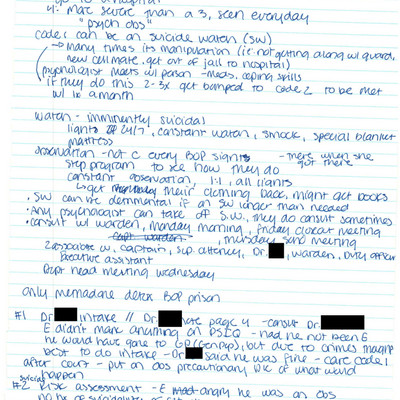 go to a hospital
4: more severe than a 3, seen everyday
"psych obs"
code 1 can be on suicide watch (SW)
many times its manipulation (ie: not getting along w/ guard,
new cell mate, get out of jail to hospital)
psychologist meets w/ person - meds, coping skills
if they do this 2-3x get bumped to code 2 to be met
w/ 1x a month
watch - imminently suicidal
lights 24/7, constant watch, smock, special blanket
mattress
observation - not @ every BOP
- there when she got there
step program to see how they do
constant observation, 1:1, all lights
get their clothing back, might get books
• SW can be detrimental if on SW longer than needed
• Any psychologist can take off S.W., they do consult sometimes
• consult w/ warden, Monday morning, Friday closeout meeting
Thursday meeting
2 associate w, captain, sup. attorney, Dr. , warden, duty officer
executive assistant
Dept head meeting Wednesday
only methadone detox BOP prison
#1 Dr. intake // Dr. note page 4 - consult Dr.
E didn't mark anything on PSIQ - had he not been E
he would have gone to GP (genpop), but due to crimes
best to do intake - Dr. said he was fine - care code 1
after court - put on obs precautionary b/c of what would
happen
#2 suicide risk assessment - E angry he was on obs